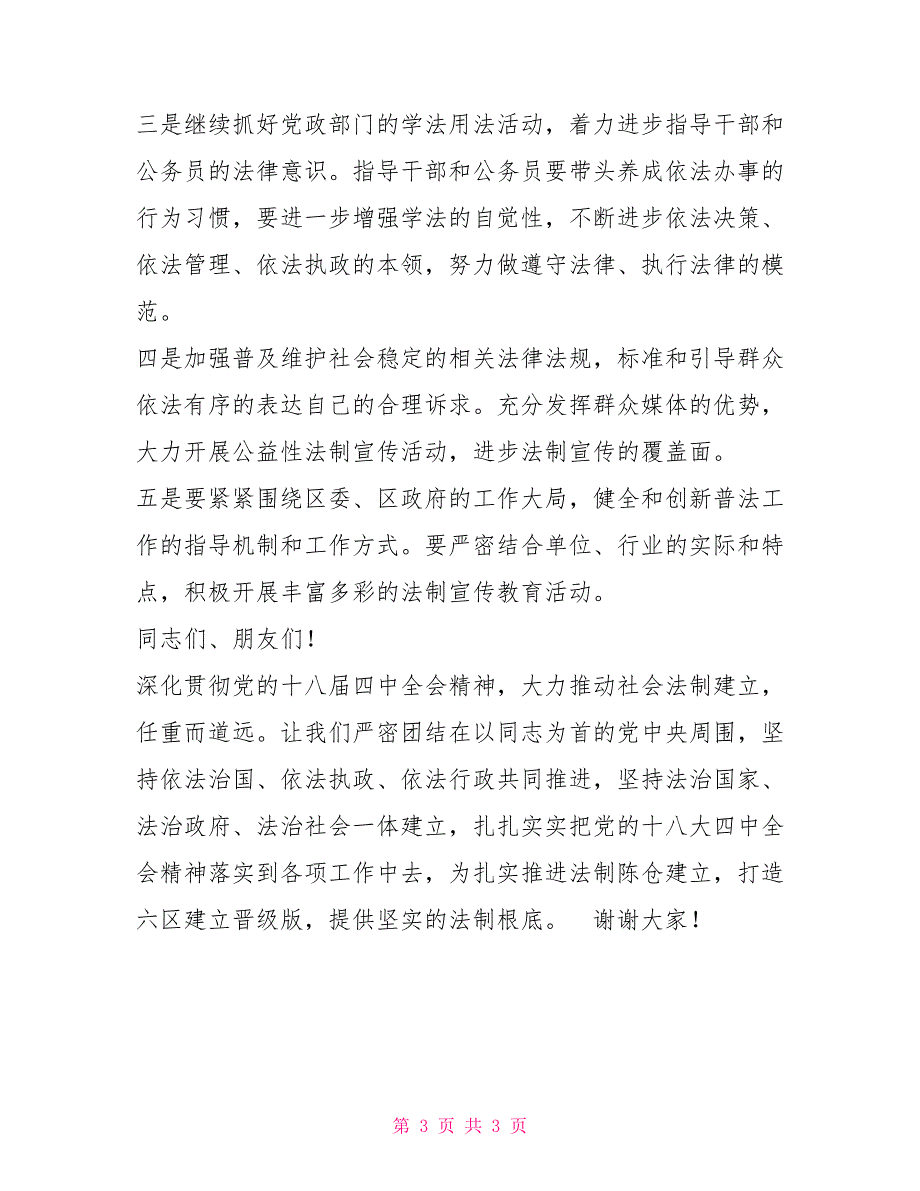 三是继续抓好党政部门的学法用法活动，着力进步指导干部和
公务员的法律意识。指导干部和公务员要带头养成依法办事的
行为习惯，要进一步增强学法的自觉性，不断进步依法决策、
依法管理、依法执政的本领，努力做遵守法律、执行法律的模
范。
四是加强普及维护社会稳定的相关法律法规，标准和引导群众
依法有序的表达自己的合理诉求。充分发挥群众媒体的优势，
大力开展公益性法制宣传活动，进步法制宣传的覆盖面。
五是要紧紧围绕区委、区政府的工作大局，健全和创新普法工
作的指导机制和工作方式。要严密结合单位、行业的实际和特
点，积极开展丰富多彩的法制宣传教育活动。
同志们、朋友们！
深化贯彻党的十八届四中全会精神，大力推动社会法制建立，
任重而道远。让我们严密团结在以同志为首的党中央周围，坚
持依法治国、依法执政、依法行政共同推进，坚持法治国家、
法治政府、法治社会一体建立，扎扎实实把党的十八大四中全
会精神落实到各项工作中去，为扎实推进法制陈仓建立，打造
六区建立晋级版，提供坚实的法制根底。　谢谢大家！
第 3 页 共 3 页